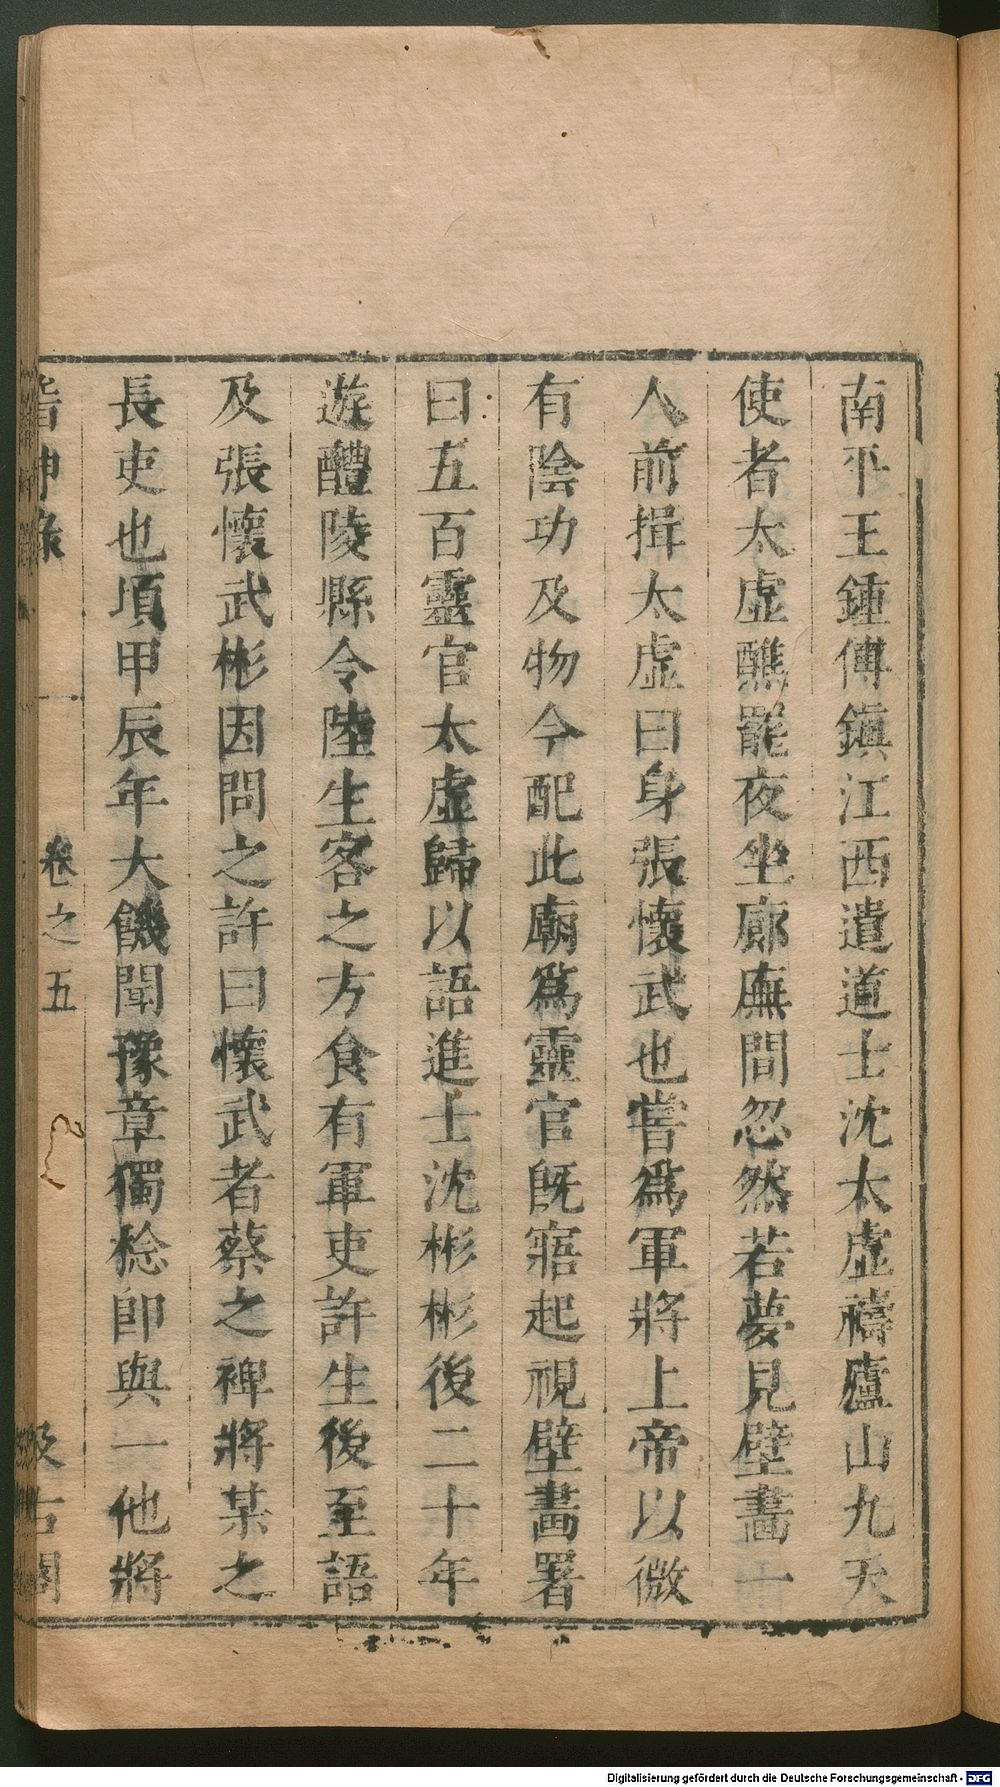 南平王鍾傳鎮江西遣道士沈太虛禱廬山九天
使者太虛醮罷夜坐廊廡間忽然若夢見壁畫一
人前揖太虛曰身張懷武也嘗爲軍將上帝以微
有陰功及物令配此廟爲靈官旣寤起視壁畫署
曰五百靈官太虛歸以語進士沈彬彬後二十年
遊醴陵縣令陸生客之方食有軍吏許生後至語
及張懷武彬因問之許曰懷武者蔡之裨將某之
長吏也頃甲辰年大饑聞豫章獨稔卽與一他將
稽神錄 卷之五 汲古閣
Digitalisierung gefördert durch die Deutsche Forschungsgemeinschaft - DFG